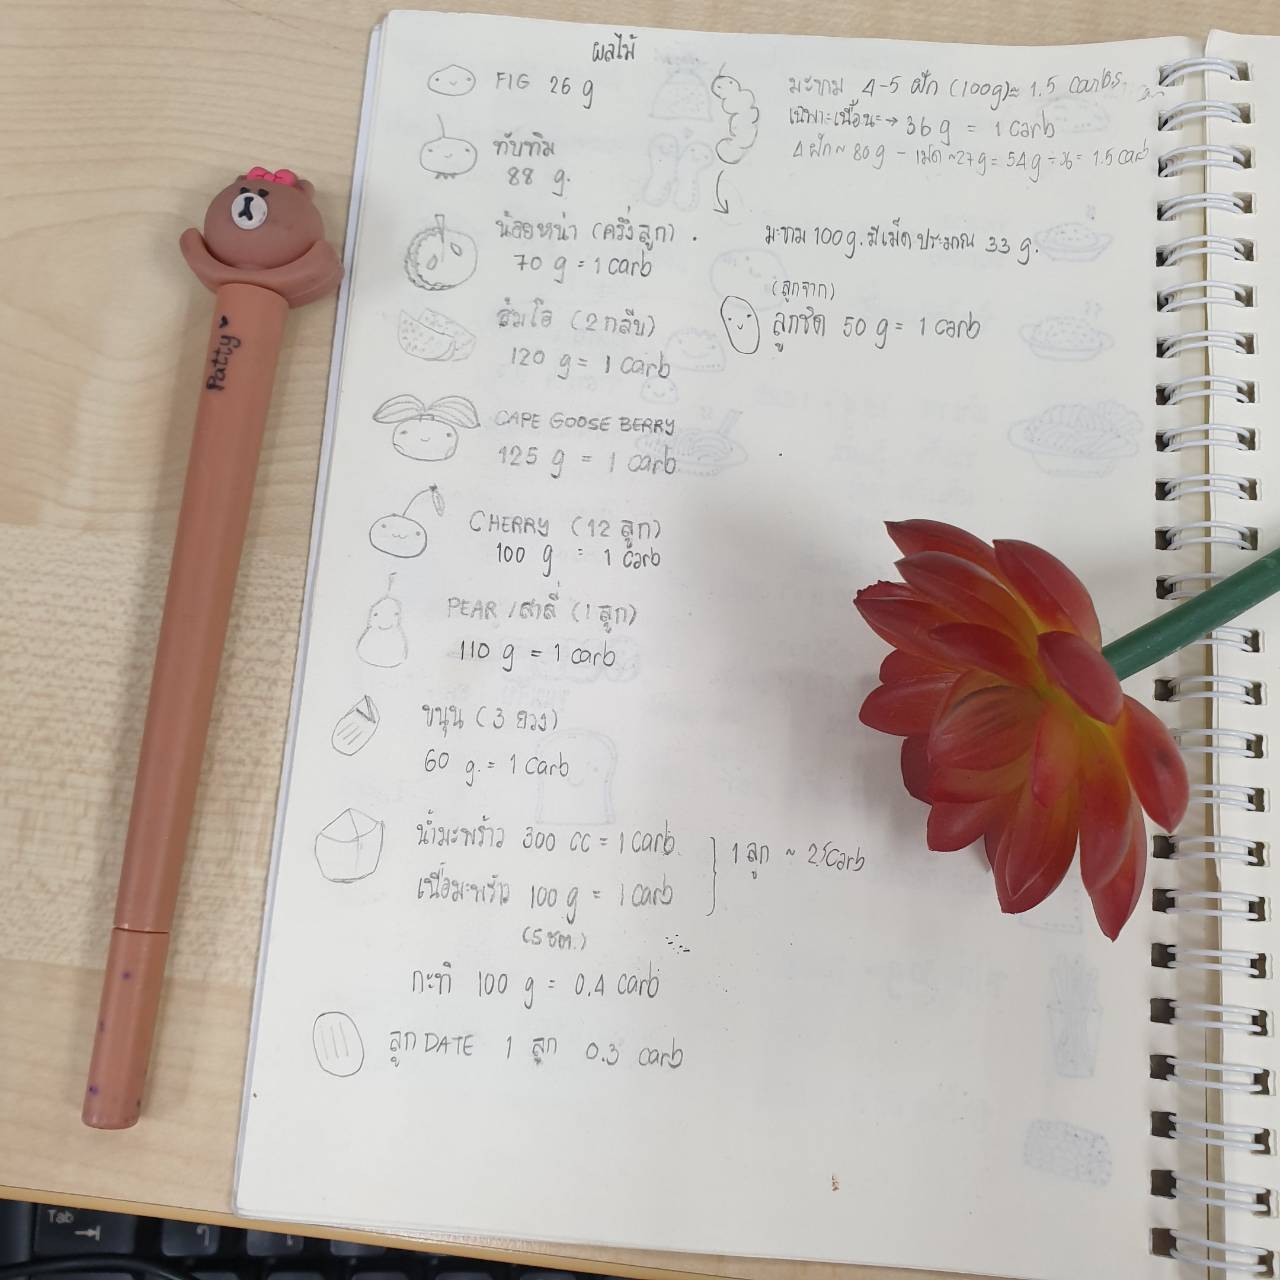 ผลไม้
FIG 26 g
ทับทิม
88 g.
น้อยหน่า (ครึ่งลูก) .
70 g = 1 carb
ส้มโอ (2 กลีบ)
120 g = 1 carb
CAPE GOOSE BERRY
125 g = 1 carb
CHERRY (12 ลูก)
100 g = 1 carb
PEAR /สาลี่ (1 ลูก)
110 g = 1 carb
ขนุน (3 ยวง)
60 g. = 1 carb
น้ำมะพร้าว 300 cc = 1 carb
เนื้อมะพร้าว 100 g = 1 carb
(5 ชต.)
1 ลูก ~ 2.5 carb
กะทิ 100 g = 0.4 carb
ลูก DATE 1 ลูก 0.3 carb
มะขาม 4-5 ฝัก (100g) ≈ 1.5 carbs
เฉพาะเนื้อนะ → 36 g = 1 carb
4 ฝัก ~ 80 g - เม็ด ~27g = 54 g ÷ 36 = 1.5 carb
มะขาม 100 g. มีเม็ด ประมาณ 33 g.
(ลูกจาก)
ลูกชิด 50 g = 1 carb
Patty
Tab